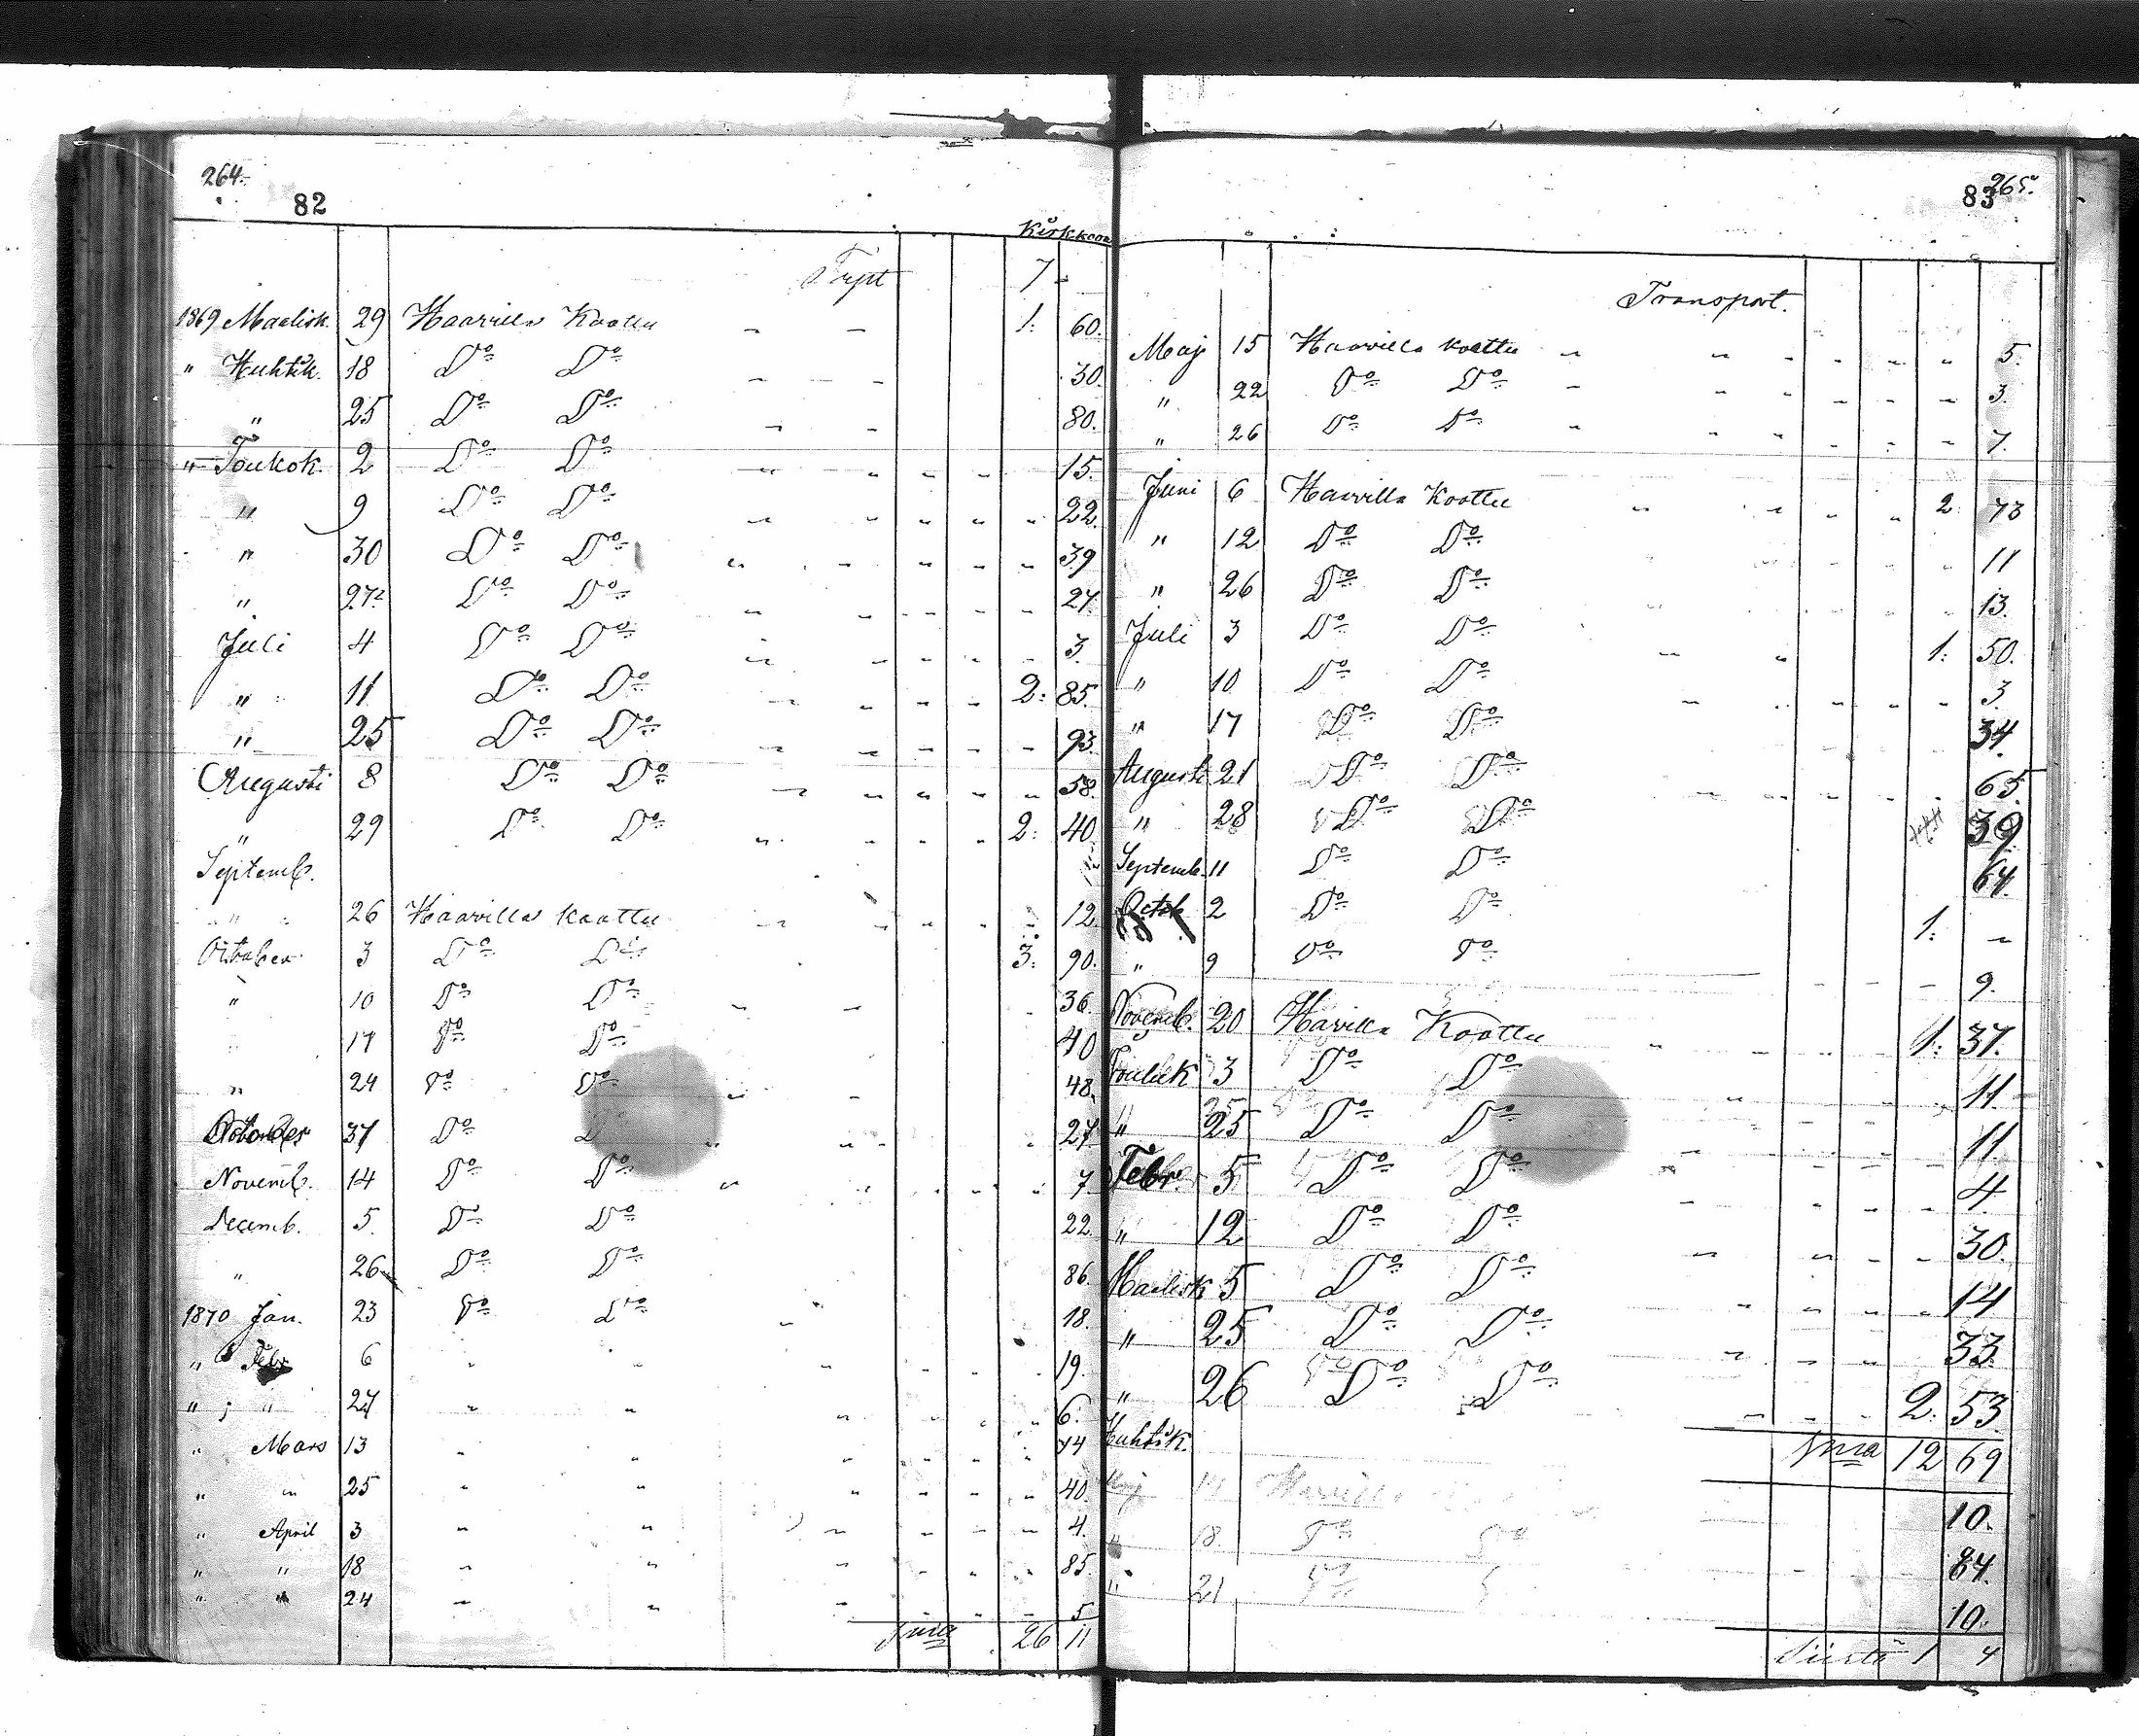 264.
82
Kirkkoon
Trpt 7 -
1869 Maalisk. 29 Haavilla Koottu - - 1: 60.
" Huhtik. 18 Do Do - - - 30.
" 25 Do Do - - 80.
" Toukok. 2 Do Do - - - - 15.
" 9 Do Do - - - - 22.
" 30 Do Do - - - - - 39
" 27 Do Do - - - - - 27.
Juli 4 Do Do - - - - - 3.
" 11 Do Do - - - - 2: 85.
" 25 Do Do - - - - - 93.
Augusti 8 Do Do - - - - - 58.
" 29 Do Do - - - - 2: 40.
Septemb.
" 26 Haavilla Koottu - - - - - 12.
October 3 Do Do 3: 90.
" 10 Do Do - - 36.
17 Do Do 40
" 24 Do Do - - 48.
October 31 Do Do - - - 27
Novemb. 14 Do Do - - - - - 7
Decemb. 5. Do Do 22.
" 26 Do Do 86.
1870 Jan. 23 Do Do - 18.
" Febr 6 - - - - - 19.
" ; " 27 - - - - - - 6.
" Mars 13 - - - - - - 14
" " 25 - - - - - - 40.
" April 3 - - - - - - 4.
" " 18 - - - - - 85.
" " 24 - - - - - - 5
Suma 26 11
265.
83
Transport.
Maj 15 Haavilla koottu - - - - - - 5.
" 22 Do Do - - - - - - 3.
" 26 Do Do - - - - - 7.
Juni 6 Haavilla Koottu - - - - 2. 73
" 12 Do Do - - - 11
" 26 Do Do - - - 13.
Juli 3 Do Do - - 1: 50.
" 10 Do Do - - - - - 3.
" 17 Do Do 34.
Augusti 21 Do Do - - - - 65.
" 28 Do Do 39
Septemb. 11 Do Do 64.
Octob 2 Do Do 1: -
" 9 Do Do - - - 9.
Novemb. 20 Havilla Koottu - - - - 1: 37.
Jouluk 3 Do Do - - - - 11.
" 25 Do Do 11
Febr. 5 Do Do - - - - 4.
" 12 Do Do - - - - 30.
Maalisk 5 Do Do - - - - 14
" 25 Do Do - - - - 33.
" 26 Do Do - - - - 2: 53
Huhtik. Suma 12 69
Maj Haavilla 10.
" 18. Do Do - - 84.
" 21 Do 10.
Siirtä 1 4